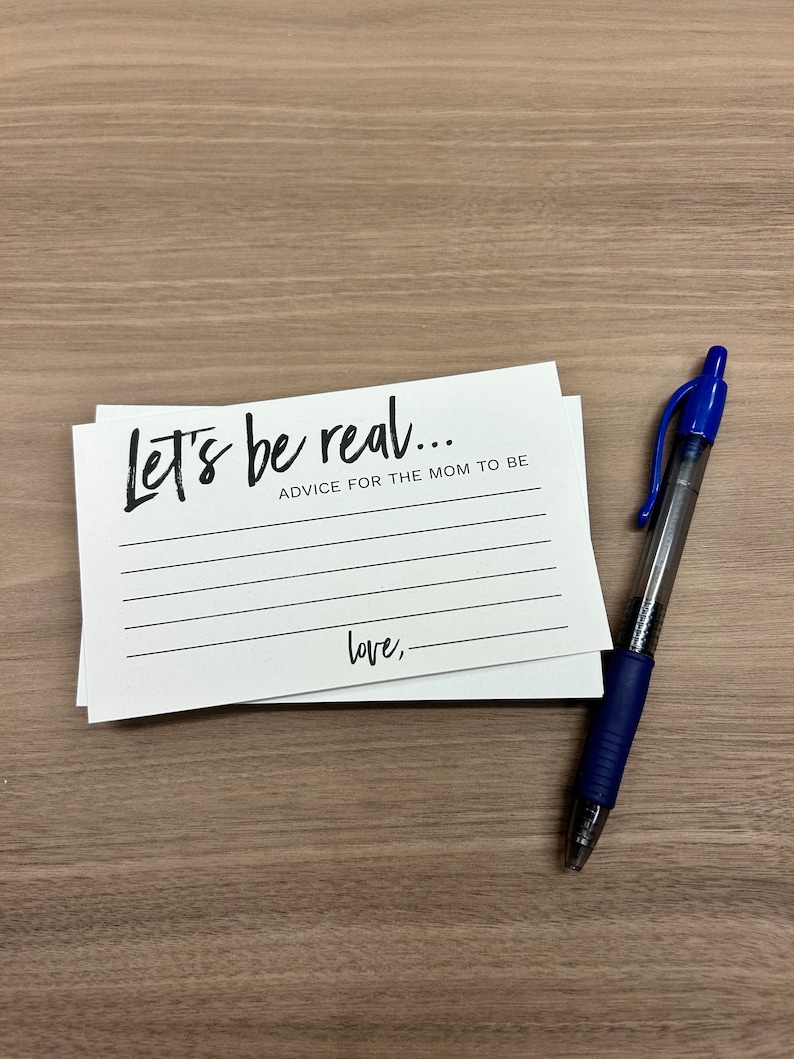 Let's be real...
ADVICE FOR THE MOM TO BE
love,